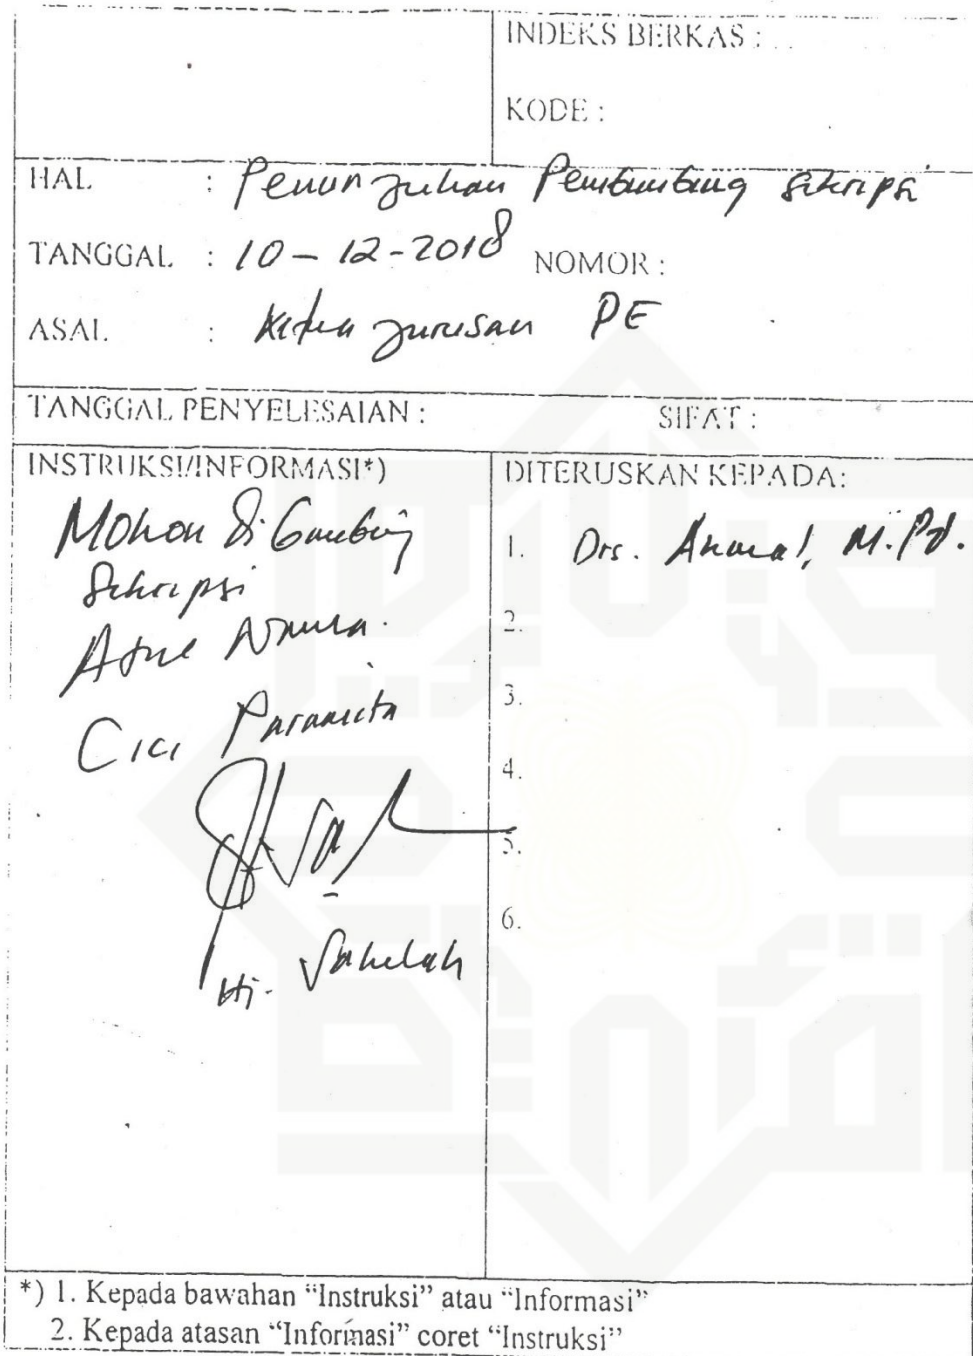 INDEKS BERKAS :
KODE :
HAL : Penunjukan Pembimbing Skripsi
TANGGAL : 10-12-2018 NOMOR :
ASAL : Ketua Jurusan PE
TANGGAL PENYELESAIAN : SIFAT :
INSTRUKSI/INFORMASI*)
Mohon di
Skripsi
Cici Paramita
Hj.
DITERUSKAN KEPADA:
1. Drs. Akmal, M.Pd.
2.
3.
4.
5.
6.
*) 1. Kepada bawahan “Instruksi” atau “Informasi”
2. Kepada atasan “Informasi” coret “Instruksi”